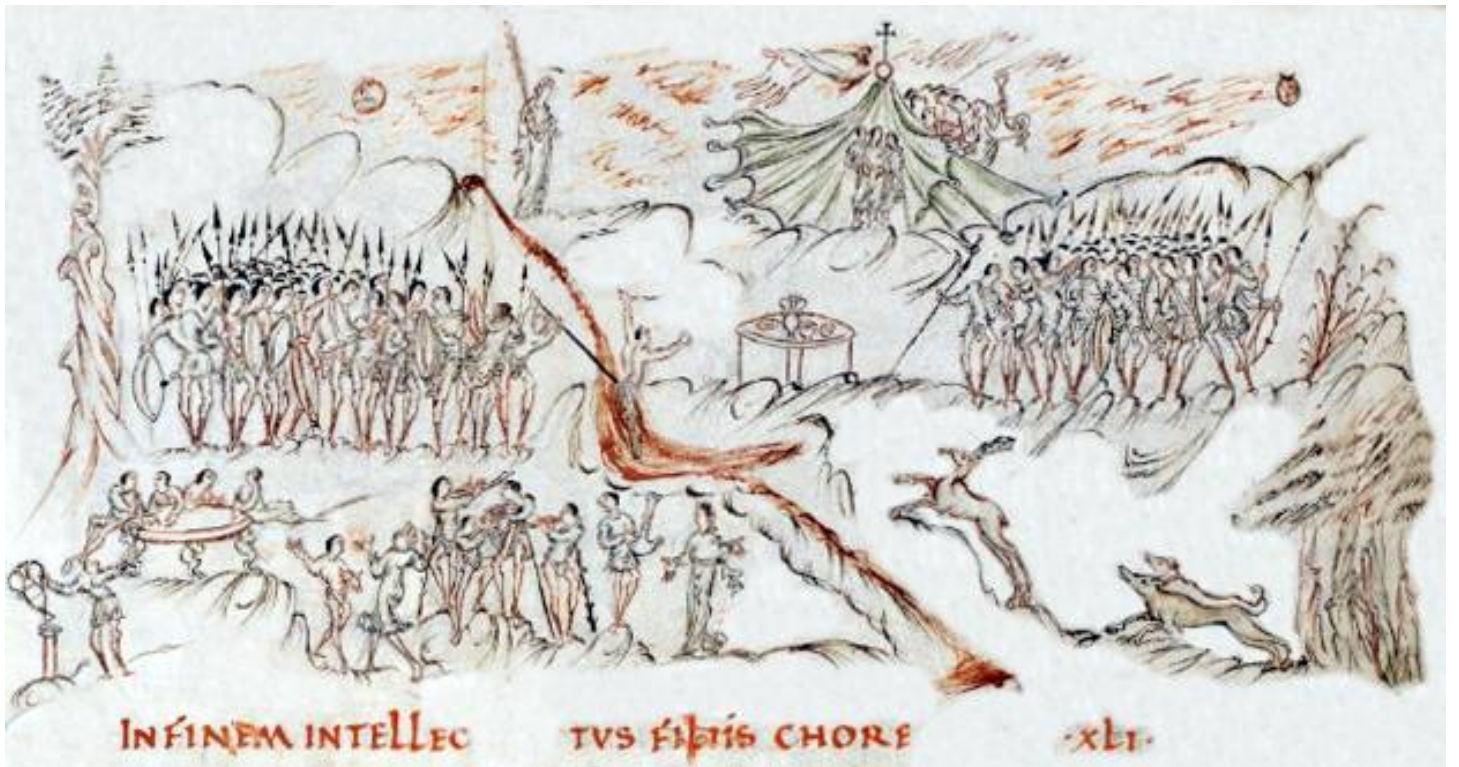 IN FINEM INTELLEC TUS filiis CHORE ·XLI·